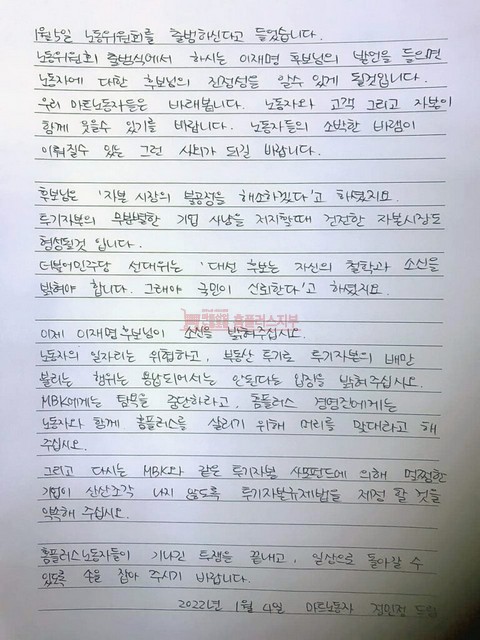 1월5일 노동위원회를 출범하신다고 들었습니다.
노동위원회 출범식에서 하시는 이재명 후보님의 발언을 들으면
노동자에 대한 후보님의 진정성을 알수 있게 될것입니다.
우리 마트노동자들은 바래봅니다. 노동자와 고객 그리고 자본이
함께 웃을수 있기를 바랍니다. 노동자들의 소박한 바램이
이뤄질수 있는 그런 사회가 되길 바랍니다.
후보님은 '자본 시장의 불공정을 해소하겠다'고 하셨지요.
투기자본의 무분별한 기업 사냥을 저지할때 건전한 자본시장도
형성될것 입니다.
더불어민주당 선대위는 '대선 후보는 자신의 철학과 소신을
밝혀야 합니다. 그래야 국민이 신뢰한다'고 하셨지요.
홈플러스지부
이제 이재명후보님이 소신을 밝혀주십시오.
노동자의 일자리는 위협하고, 부동산 투기로 투기자본의 배만
불리는 행위는 용납되어서는 안된다는 입장을 밝혀주십시오.
MBK에게는 탐욕을 중단하라고, 홈플러스 경영진에게는
노동자와 함께 홈플러스를 살리기 위해 머리를 맞대라고 해
주십시오.
그리고 다시는 MBK와 같은 투기자본 사모펀드에 의해 멀쩡한
기업이 산산조각 나지 않도록 투기자본규제법을 제정 할 것을
약속해 주십시오.
홈플러스노동자들이 기나긴 투쟁을 끝내고, 일상으로 돌아갈 수
있도록 손을 잡아 주시기 바랍니다.
2022년 1월 4일 마트노동자 정민정 드림